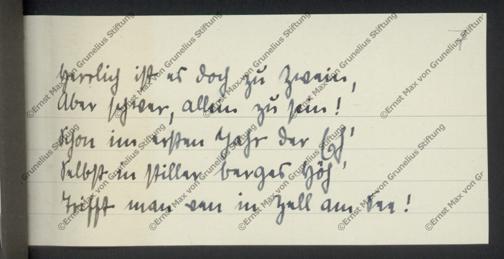 Herrlich ist es doch zu Zwein,
Aber schwer, allein zu sein!
Schon im ersten Jahr der Eh'
Selbst in stiller berges Höh'
Trifft man van in Zell am See!
©Ernst Max von Grunelius Stiftung